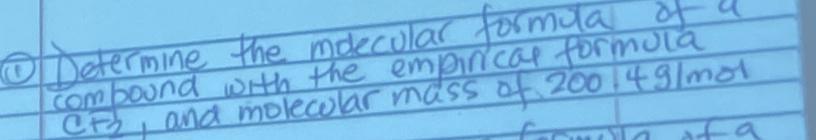 ① Determine the molecular formula of a
compound with the empirical formula
CF2, and molecular mass of 200.4 g/mol